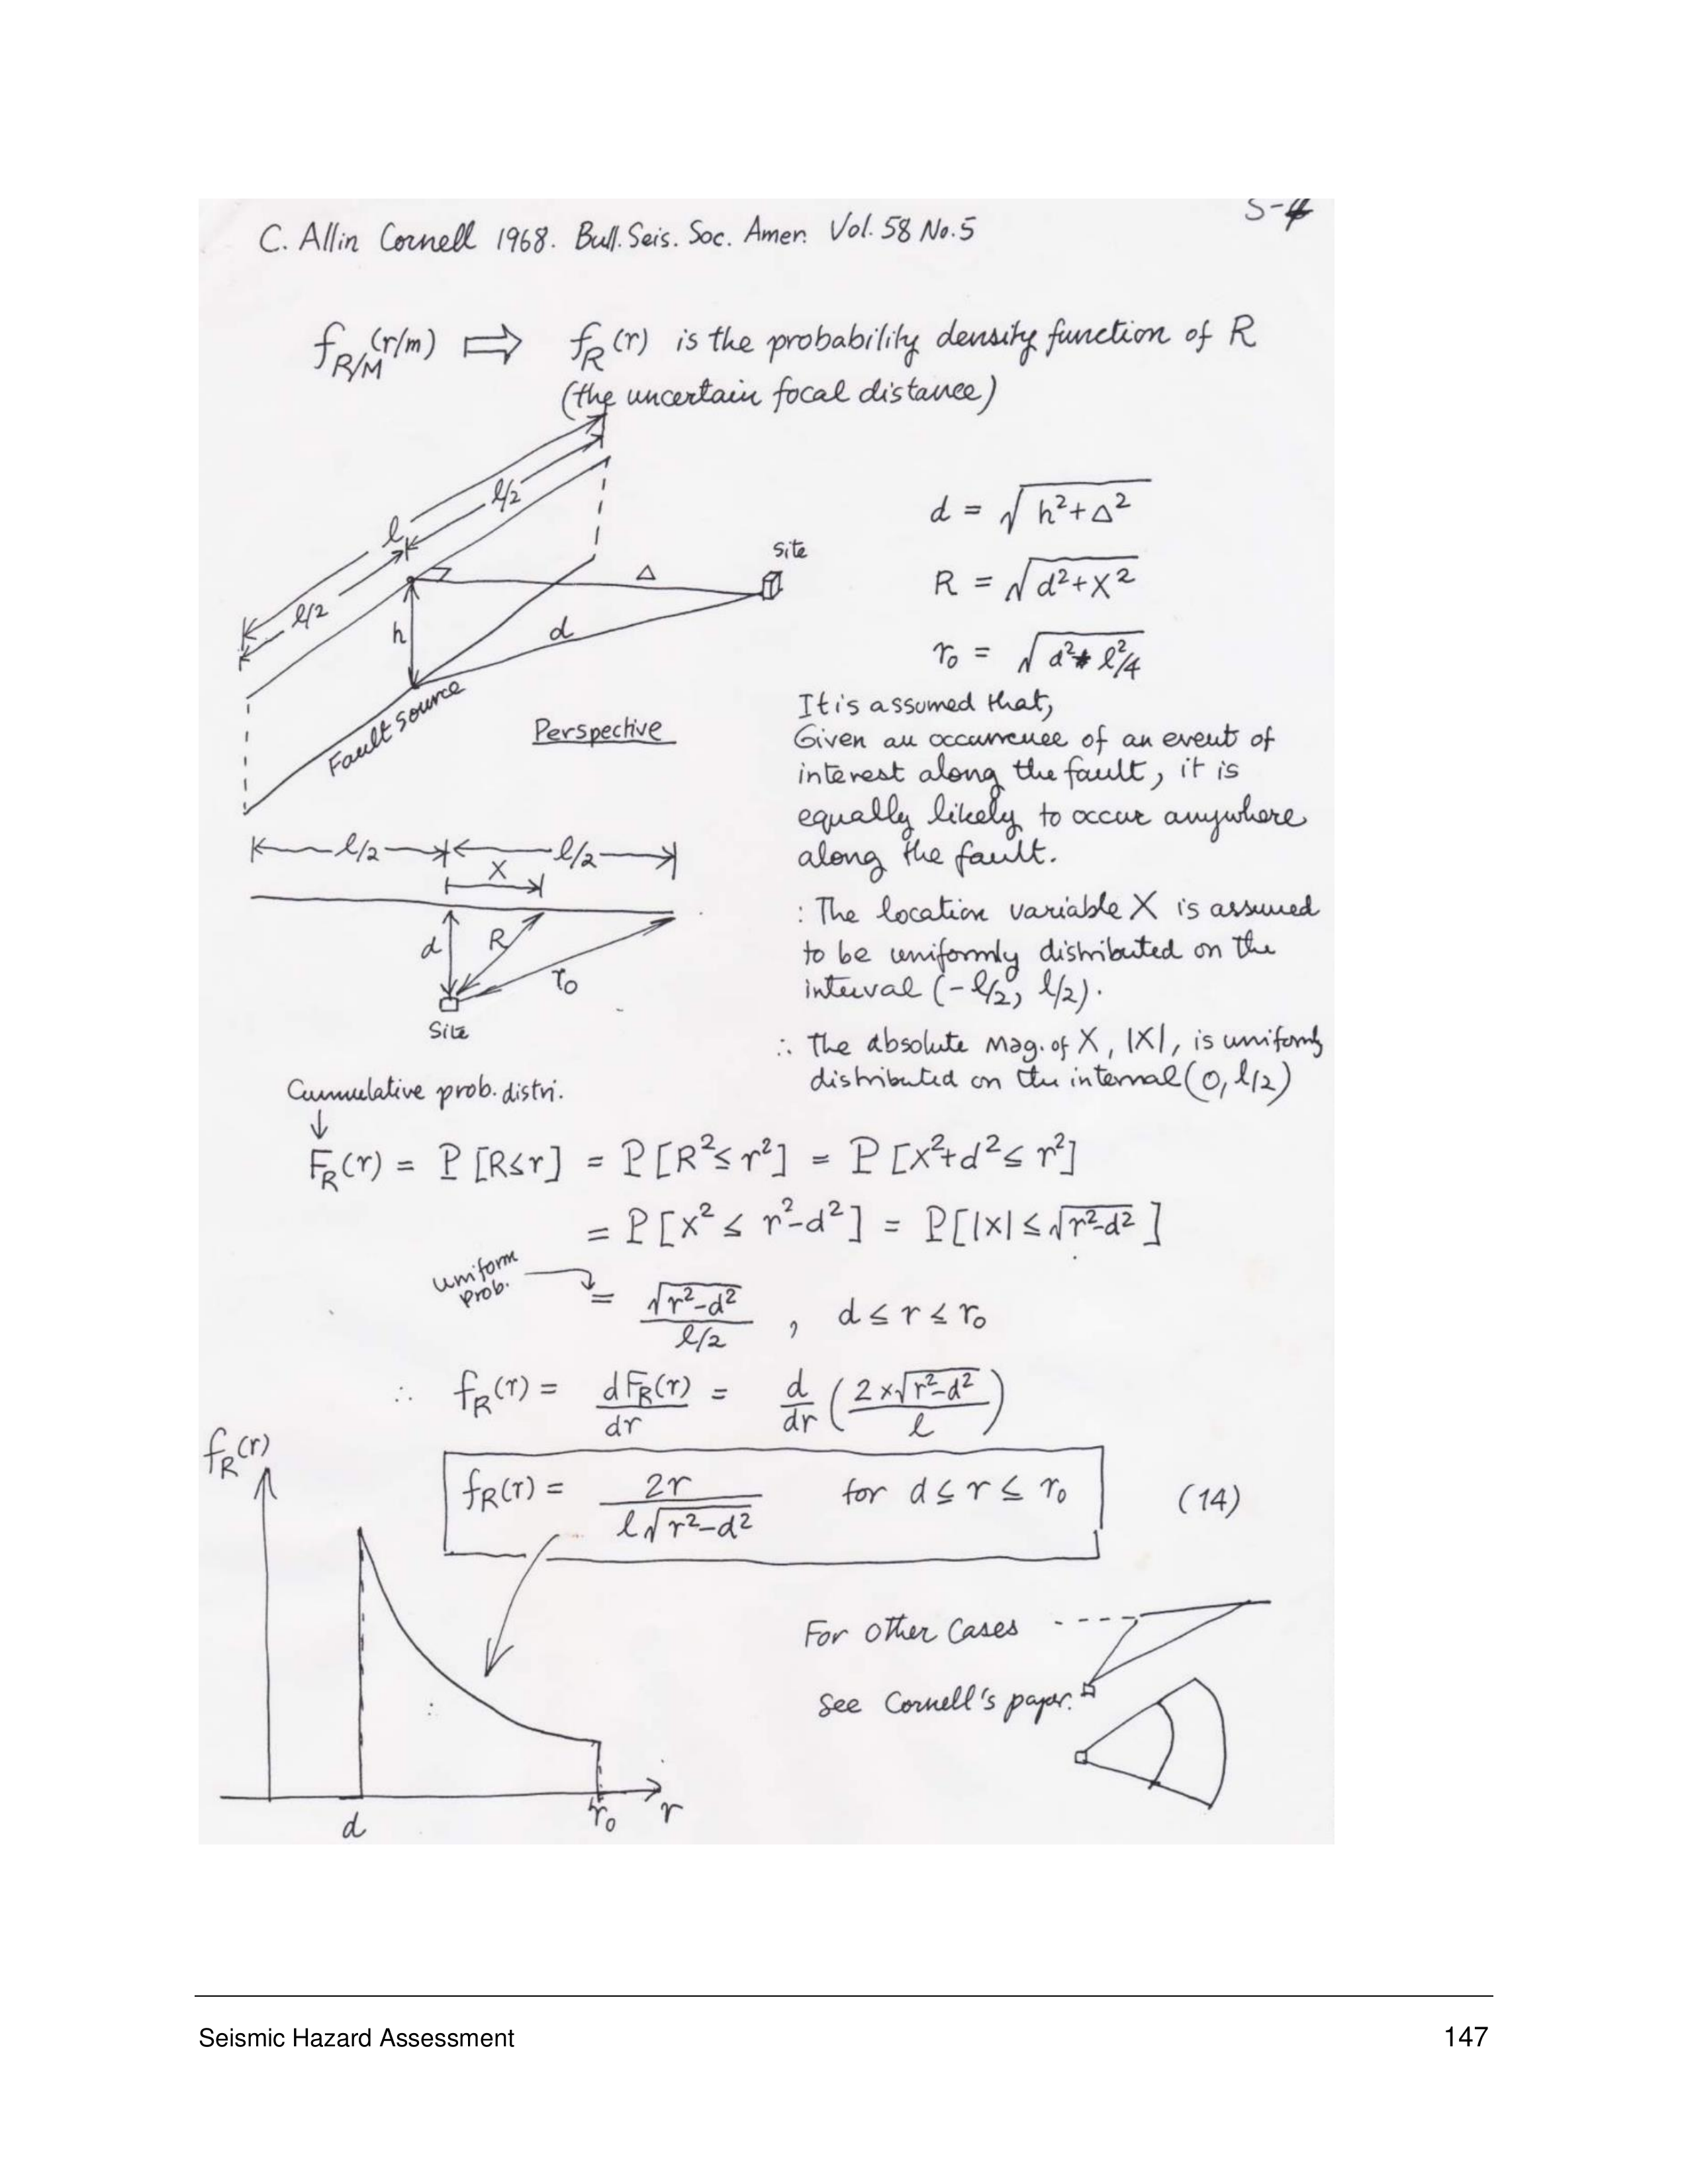 S-4
C. Allin Cornell 1968. Bull. Seis. Soc. Amer. Vol. 58 No. 5
f_{R/M}(r/m) ⇒ f_R(r) is the probability density function of R
(the uncertain focal distance)
l
l/2
l/2
h
Δ
d
Site
Fault source
Perspective
d = √(h²+Δ²)
R = √(d²+X²)
r₀ = √(d²+l²/4)
It is assumed that,
Given an occurrence of an event of
interest along the fault, it is
equally likely to occur anywhere
along the fault.
: The location variable X is assumed
to be uniformly distributed on the
interval (-l/2, l/2).
∴ The absolute mag. of X, |X|, is uniformly
distributed on the internal (0, l/2)
l/2
l/2
X
d
R
r₀
Site
Cumulative prob. distri.
↓
F_R(r) = P[R≤r] = P[R²≤r²] = P[X²+d²≤r²]
= P[X² ≤ r²-d²] = P[|X| ≤ √(r²-d²)]
uniform
prob.
= √(r²-d²) / (l/2) , d ≤ r ≤ r₀
∴ f_R(r) = dF_R(r)/dr = d/dr (2×√(r²-d²) / l)
f_R(r) = 2r / (l√(r²-d²)) for d ≤ r ≤ r₀ (14)
f_R(r)
d
r₀
r
For other cases
see Cornell's paper.
Seismic Hazard Assessment 147